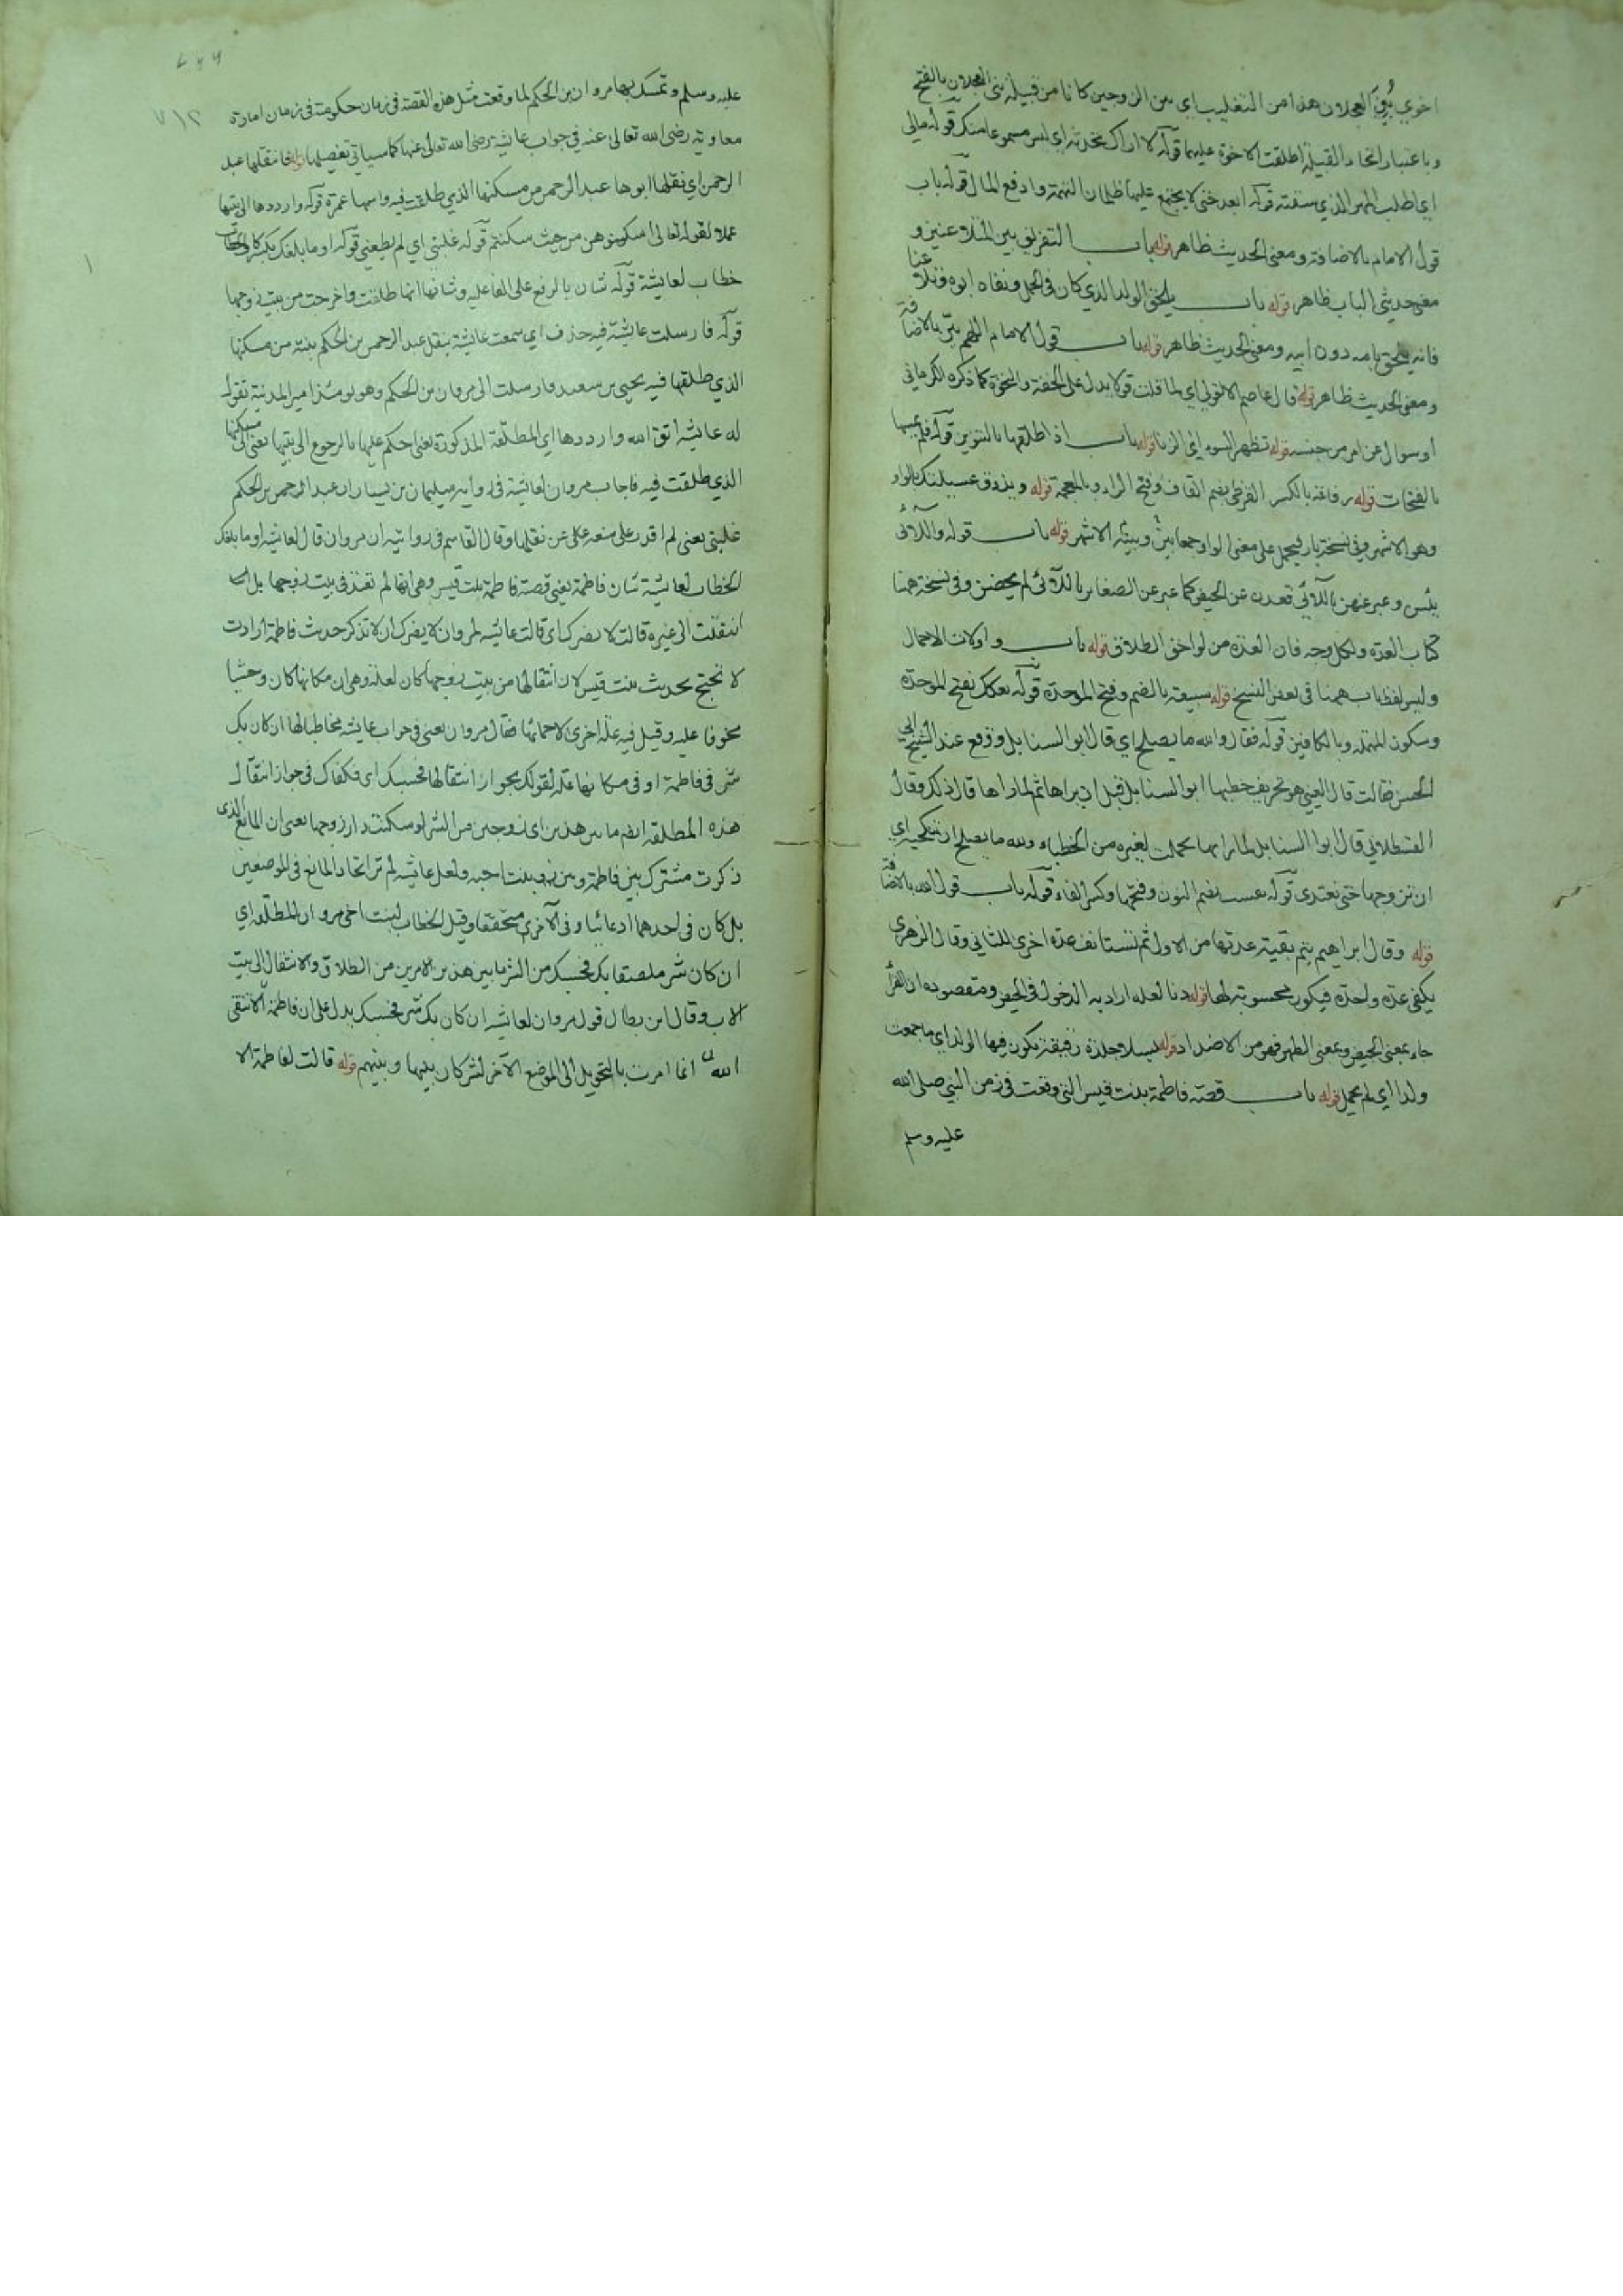 اخوي بني العجلان هذا من التغليب اي بين الزوجين كانا من قبيلة بني العجلان بالفتح
وباعتبار اتحاد القبيلة اطلقت الاخوة عليهما قوله لا اراك تحدثه اي ليس مسموعا منك قوله مالي
اي اطلب المهر الذي سقته قوله ابعد حتى لا يجتمع عليها ظلمان التهمة وادفع المال قوله باب
قول الامام بالاضافة ومعنى الحديث ظاهر قوله باب التفريق بين المتلاعنين و
معنى حديثي الباب ظاهر قوله باب يلحق الولد الذي كان في الحمل ونفاه ابوه وتلاعنا
فانه يلحق بامه دون ابيه ومعنى الحديث ظاهر قوله باب قول الامام اللهم بيّن بالاضافة
ومعنى الحديث ظاهر قوله قال عاصم الا قولي اي لما قلت قولا يدل على الخفة والنخوة كما ذكره الكرماني
او سوال عن امر من جنسه قوله تظهر السوء اي الزنا قوله باب اذا طلقها بالتنوين قوله فلم يمسها
بالفتحات قوله رفاعة بالكسر القرظي بضم القاف وفتح الراء وبالمعجمة قوله ويذوق عسيلتك بالواو
وهو الاشهر وفي نسخة باو فيحمل على معنى الواو جمعا بينه وبينه الاشهر قوله باب قوله واللائي
يئس وعبر عنهن باللائي قعدن عن الحيض كما عبر عن الصغائر باللائي لم يحضن وفي نسخة ههنا
كتاب العدة ولكل وجه فان العدة من لواحق الطلاق قوله باب واولات الاحمال
وليس لفظ باب ههنا في بعض النسخ قوله سبيعة بالضم وفتح الموحدة قوله بعكك بفتح الموحدة
وسكون المهملة وبالكافين قوله فقال والله ما يصلح اي قال ابو السنابل ووقع عند الشيخ ابي
الحسن فقالت قال العيني هو تحريف خطبها ابو السنابل قبل ان يراها ثم لما راها قال ذلك وقال
القسطلاني قال ابوا السنابل لما راها تجملت لغيره من الخطباء والله ما يصلح ان تنكحيه اي
ان تتزوجها حتى تعتدي قوله نفست بضم النون وفتحها وكسر الفاء قوله باب قول الله بالاضافة
قوله وقال ابراهيم يتم بقية عدتها من الاول ثم تستانف عدة اخرى للثاني وقال الزهري
يكفي عدة واحدة فيكون محسوبة لها قوله دنا لعله اراد به الدخول في الحيض ومقصوده ان القرأ
جاء بمعنى الحيض وبمعنى الطهر فهو من الاضداد قوله بسلا جلدة رقيقة يكون فيها الولد اي ما جمعت
ولدا اي لم تحمل قوله باب قصة فاطمة بنت قيس التي وقعت في زمن النبي صلى الله
عليه وسلم
عليه وسلم وتمسك بها مروان بن الحكم لما وقعت مثل هذه القصة في زمان حكومته في زمان امارة
معاوية رضى الله تعالى عنه في جواب عائشة رضى الله تعالى عنها كما سياتي تفصيلها قوله فانتقلها عبد
الرحمن اي نقلها ابوها عبد الرحمن من مسكنها الذي طلقت فيه واسمها عمرة قوله وارددها الى بيتها
عملا لقوله تعالى اسكنوهن من حيث سكنتم قوله غلبني اي لم يطعني قوله اوما بلغك بكسر كاف الخطاب
خطاب لعائشة قوله شان بالرفع على الفاعلية وشانها انها طلقت واخرجت من بيت زوجها
قوله فارسلت عائشة فيه حذف اي سمعت عائشة بنقل عبد الرحمن بن الحكم بنته من مسكنها
الذي طلقها فيه يحيى بن سعيد فارسلت الى مروان بن الحكم وهو يومئذ امير المدينة تقول
له عائشة اتق الله وارددها اي المطلقة المذكورة يعني احكم عليها بالرجوع الى بيتها يعني الى مسكنها
الذي طلقت فيه فاجاب مروان لعائشة في رواية سليمان بن يسار ان عبد الرحمن بن الحكم
غلبني يعني لم اقدر على منعه عن نقلها وقال القاسم في روايته ان مروان قال لعائشة اوما بلغك
الخطاب لعائشة شان فاطمة يعني قصة فاطمة بنت قيس وهي انها لم تعتد في بيت زوجها بل
انتقلت الى غيره قالت لا يضرك اي قالت عائشة لمروان لا يضرك ان لا تذكر حديث فاطمة ارادت
لا تحتج بحديث بنت قيس لان انتقالها من بيت زوجها كان لعلة وهي ان مكانها كان وحشيا
مخوفا عليه وقيل فيه علة اخرى لاحمائها فقال مروان يعني في جواب عائشة مخاطبا لها ان كان بك
شر في فاطمة او في مكانها علة لقولك بجواز انتقالها فحسبك اي فكفاك في جواز انتقال
هذه المطلقة ايضا ما بين هذين اي زوجين من الشر لو سكنت دار زوجها يعني ان المانع الذي
ذكرت مشترك بين فاطمة وبين بنت اخيه ولعل عائشة لم تر اتحاد المانع في الموضعين
بل كان في احدهما ادعائيا وفي الآخر متحققا وقيل الخطاب لبنت اخي مروان المطلقة اي
ان كان شر ملصقا بك فحسبك من الشر ما بين هذين الامرين من الطلاق والانتقال الى بيت
الاب وقال ابن بطال قول مروان لعائشة ان كان بك شر فحسبك يدل على ان فاطمة الا تتقي
الله انما امرت بالتحويل الى الموضع الآخر لشر كان بينها وبينهم قوله قالت لفاطمة الا
٧١٢